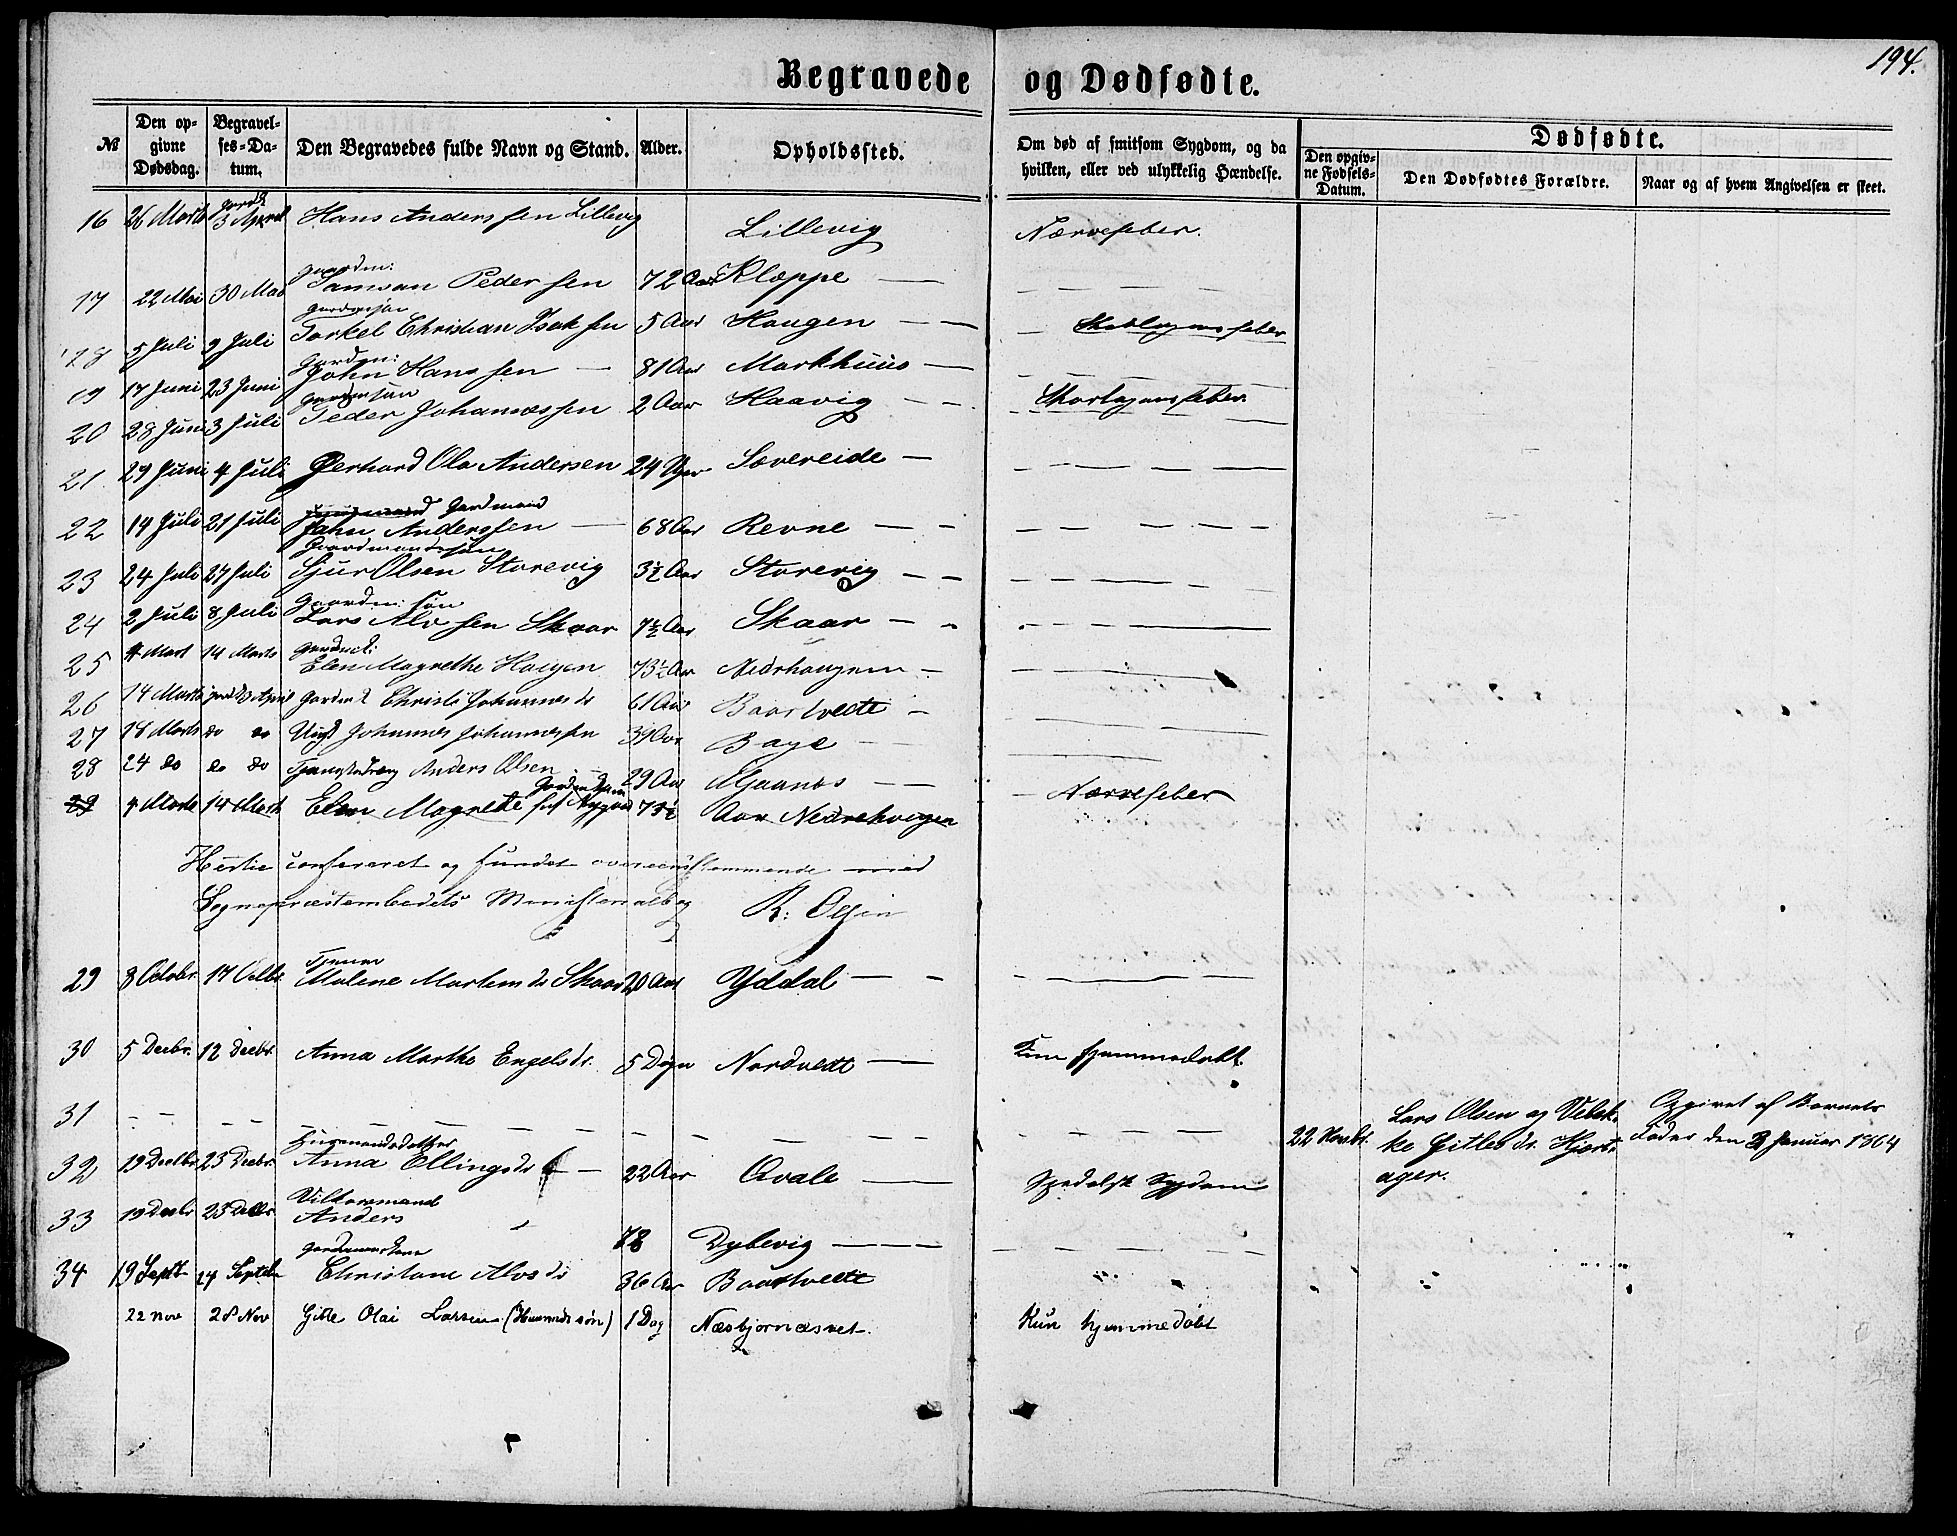 194.
Begravede og Dødfødte.
№ Den opgivne Dødsdag. Begravelses-Datum. Den Begravedes fulde Navn og Stand. Alder. Opholdssted. Om død af smitsom Sygdom, og da hvilken, eller ved ulykkelig Hændelse. Dødfødte. Den opgivne Fødsels-Datum. Den Dødfødtes Forældre. Naar og af hvem Angivelsen er skeet.
16 26 Marts jordf 3 April Hans Anderssen Lillevig Lillevig Nærvefeber.
17 22 Mai 30 Mai Gaardm: Samson Pederssen 72 Aar Kleppe — — — —
18 5 Juli 9 Juli Gardmsøn Torkel Christian Isaksen 5 Aar Haugen — — — Skarlagensfeber
19 17 Juni 23 Juni Gardm: John Hanssen — 81 Aar Markhuus — — — —
20 28 Juni 3 Juli Gardmsøn Peder Johannessen 2 Aar Haavig — — Skarlagensfeber
21 29 Juni 4 Juli Gerhard Ola Andersen 24 Uger Sævereide — — — —
22 14 Juli 21 Juli Gardmand John Anderssen — 68 Aar Revne — — — — —
23 24 Juli 27 Juli Gaardmandssøn Sjur Olsen Storevig 3½ Aar Storevig — — — — —
24 2 Juli 8 Juli Gaardm: søn Lars Alvssen Skaar 7½ Aar Skaar — — — —
25 4 Mart 14 Marts Elen Magrethe Haugen 73½ Aar Nedrhaugen — — — —
26 14 Marts jordf 3 April Christi Johannesdr 61 Aar Baartvedt — — —
27 18 Marts do do Ungk Johannes Johannessen 31 Aar Bage — — —
28 24 do do do Tjenestedreng Anders Olsen 29 Aar — Nærvefeber
29 4 Marts 14 Marts Elen Magrete 73½ Aar Nedrehaugen
Hertil confereret og fundet overeensstemmende med
Sognepræstembedets Ministerialbog R: Olsin
29 8 Octobr. 17 Octbr. Tjener Malene Martensdr Skaar 20 Aar Yddal — — —
30 5 Decbr. 12 Decbr. Anna Marthe Engelsdr. 5 Døgn Nordvedt — Kun hjemmedøbt.
31 — — — — — — — — — — — — 22 Novbr. Lars Olsen og Vebek- Opgivet af Barnets
ke Gitlesdr. Hjort- Fader den 3 Januar 1864
ager.
32 19 Decbr. 23 Decbr. Huusmandsdatter Anna Ellingsdr — 22 Aar Qvale — Spedalsk Sygdom
33 19 Decbr 23 Decbr. Vilkaarsmand Anders 78 Dybevig — — — — — —
34 19 Septb 24 Septeb Gardmandskone Christane Alvsdr 36 Aar Baartvedt
22 Nov 28 Nov Gitle Olai Larsen (Husmdssøn) 1 Dag Næsbjornæsvet. Kun hjemmedøbt